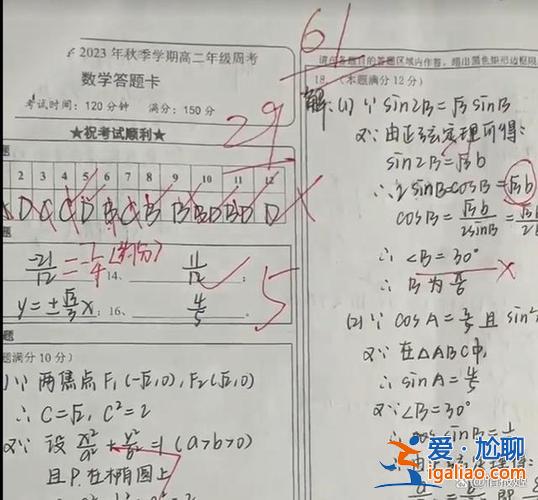 2023年秋季学期高二年级周考
数学答题卡
考试时间：120分钟 满分：150分
★祝考试顺利★
29
61
题
2 3 4 5 6 7 8 9 10 11 12
D C C D B C B B BD BD D
题
-21/12 = -7/4 (约分) 14、 11/12
y=±√3/3x 16、 4/5
5
题
题满分10分）
(1)∵两焦点F₁(-√2,0),F₂(√2,0)
∴C=√2, C²=2
又∵设x²/a²+y²/b²=1(a>b>0)
且P在椭圆上
请在各题目的答题区域内作答，超出黑色矩形边框限
18.（本题满分12分）
解:(1)∵sin2B=√3sinB
又∵由正弦定理可得:
sin2B=√3b
∴2sinBcosB=√3b
cosB=√3b/2sinB=
∴∠B=30°
∴B为π/6
(2)∵cosA=3/5且sin²
又∵在△ABC中
∴sinA=4/5
又∵∠B=30°
∴sinB=1
由正弦定理得:
欧·尬聊
igaliao.com